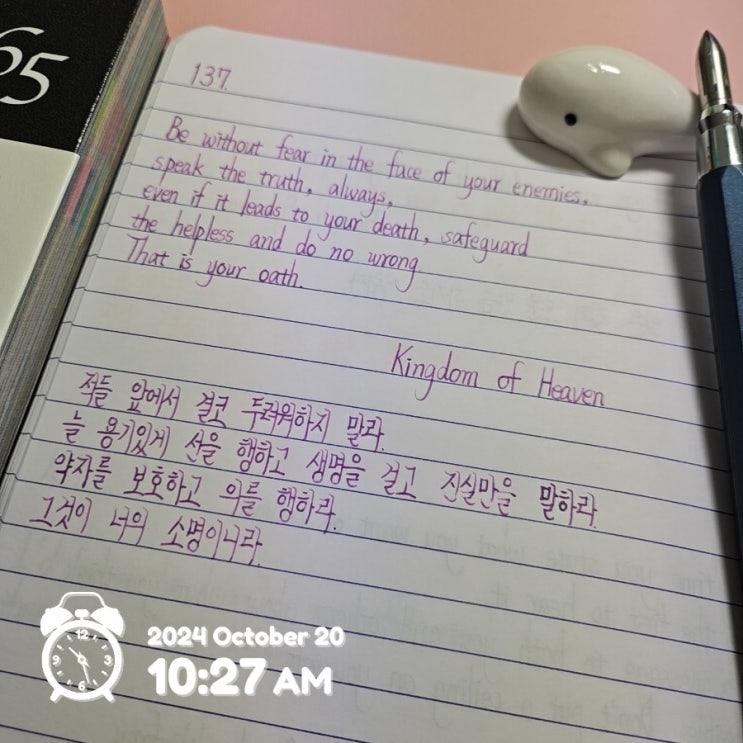 65
137.
Be without fear in the face of your enemies,
speak the truth, always,
even if it leads to your death, safeguard
the helpless and do no wrong.
That is your oath.
Kingdom of Heaven
적들 앞에서 결코 두려워하지 말라.
늘 용기있게 선을 행하고 생명을 걸고 진실만을 말하라.
약자를 보호하고 의를 행하라.
그것이 너의 소명이니라.
12
9 3
6
2024 October 20
10:27 AM